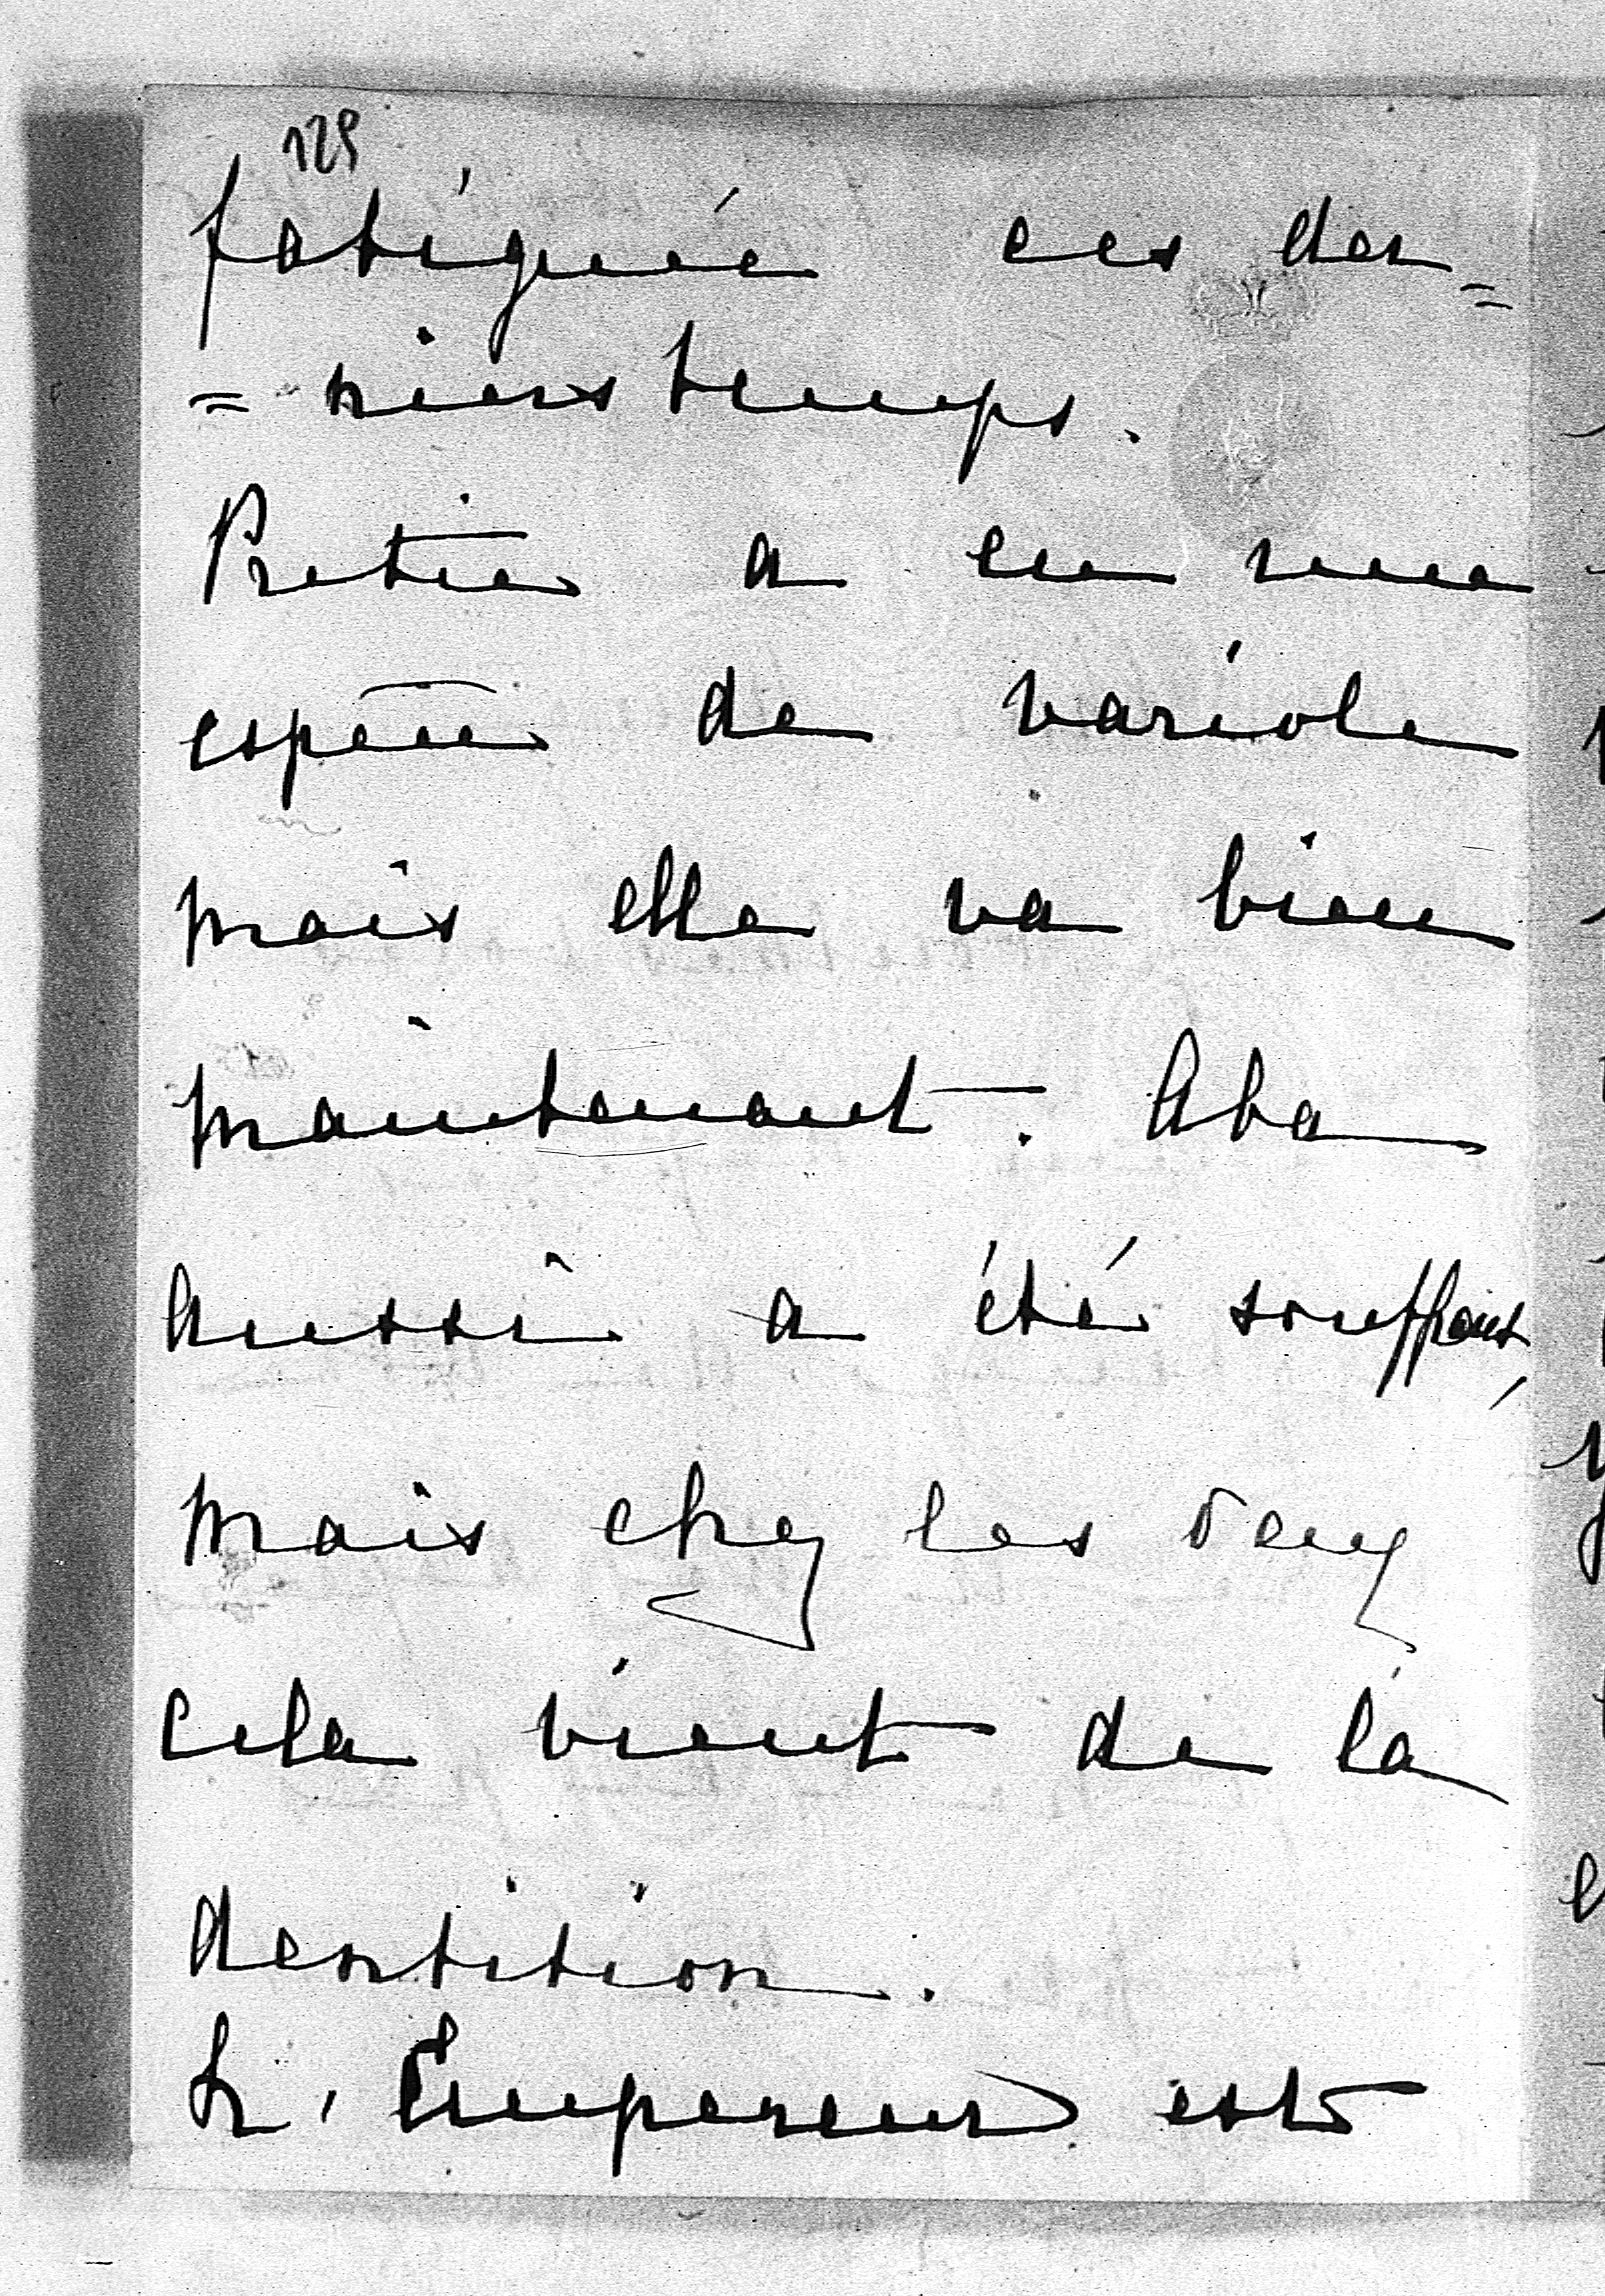 129
fatiguée ces der=
=niers temps.
a eu une
espèce de variole
mais elle va bien
maintenant. Aba
aussi a été souffrant,
mais chez les deux
cela vient de la
dentition.
L'Empereur est